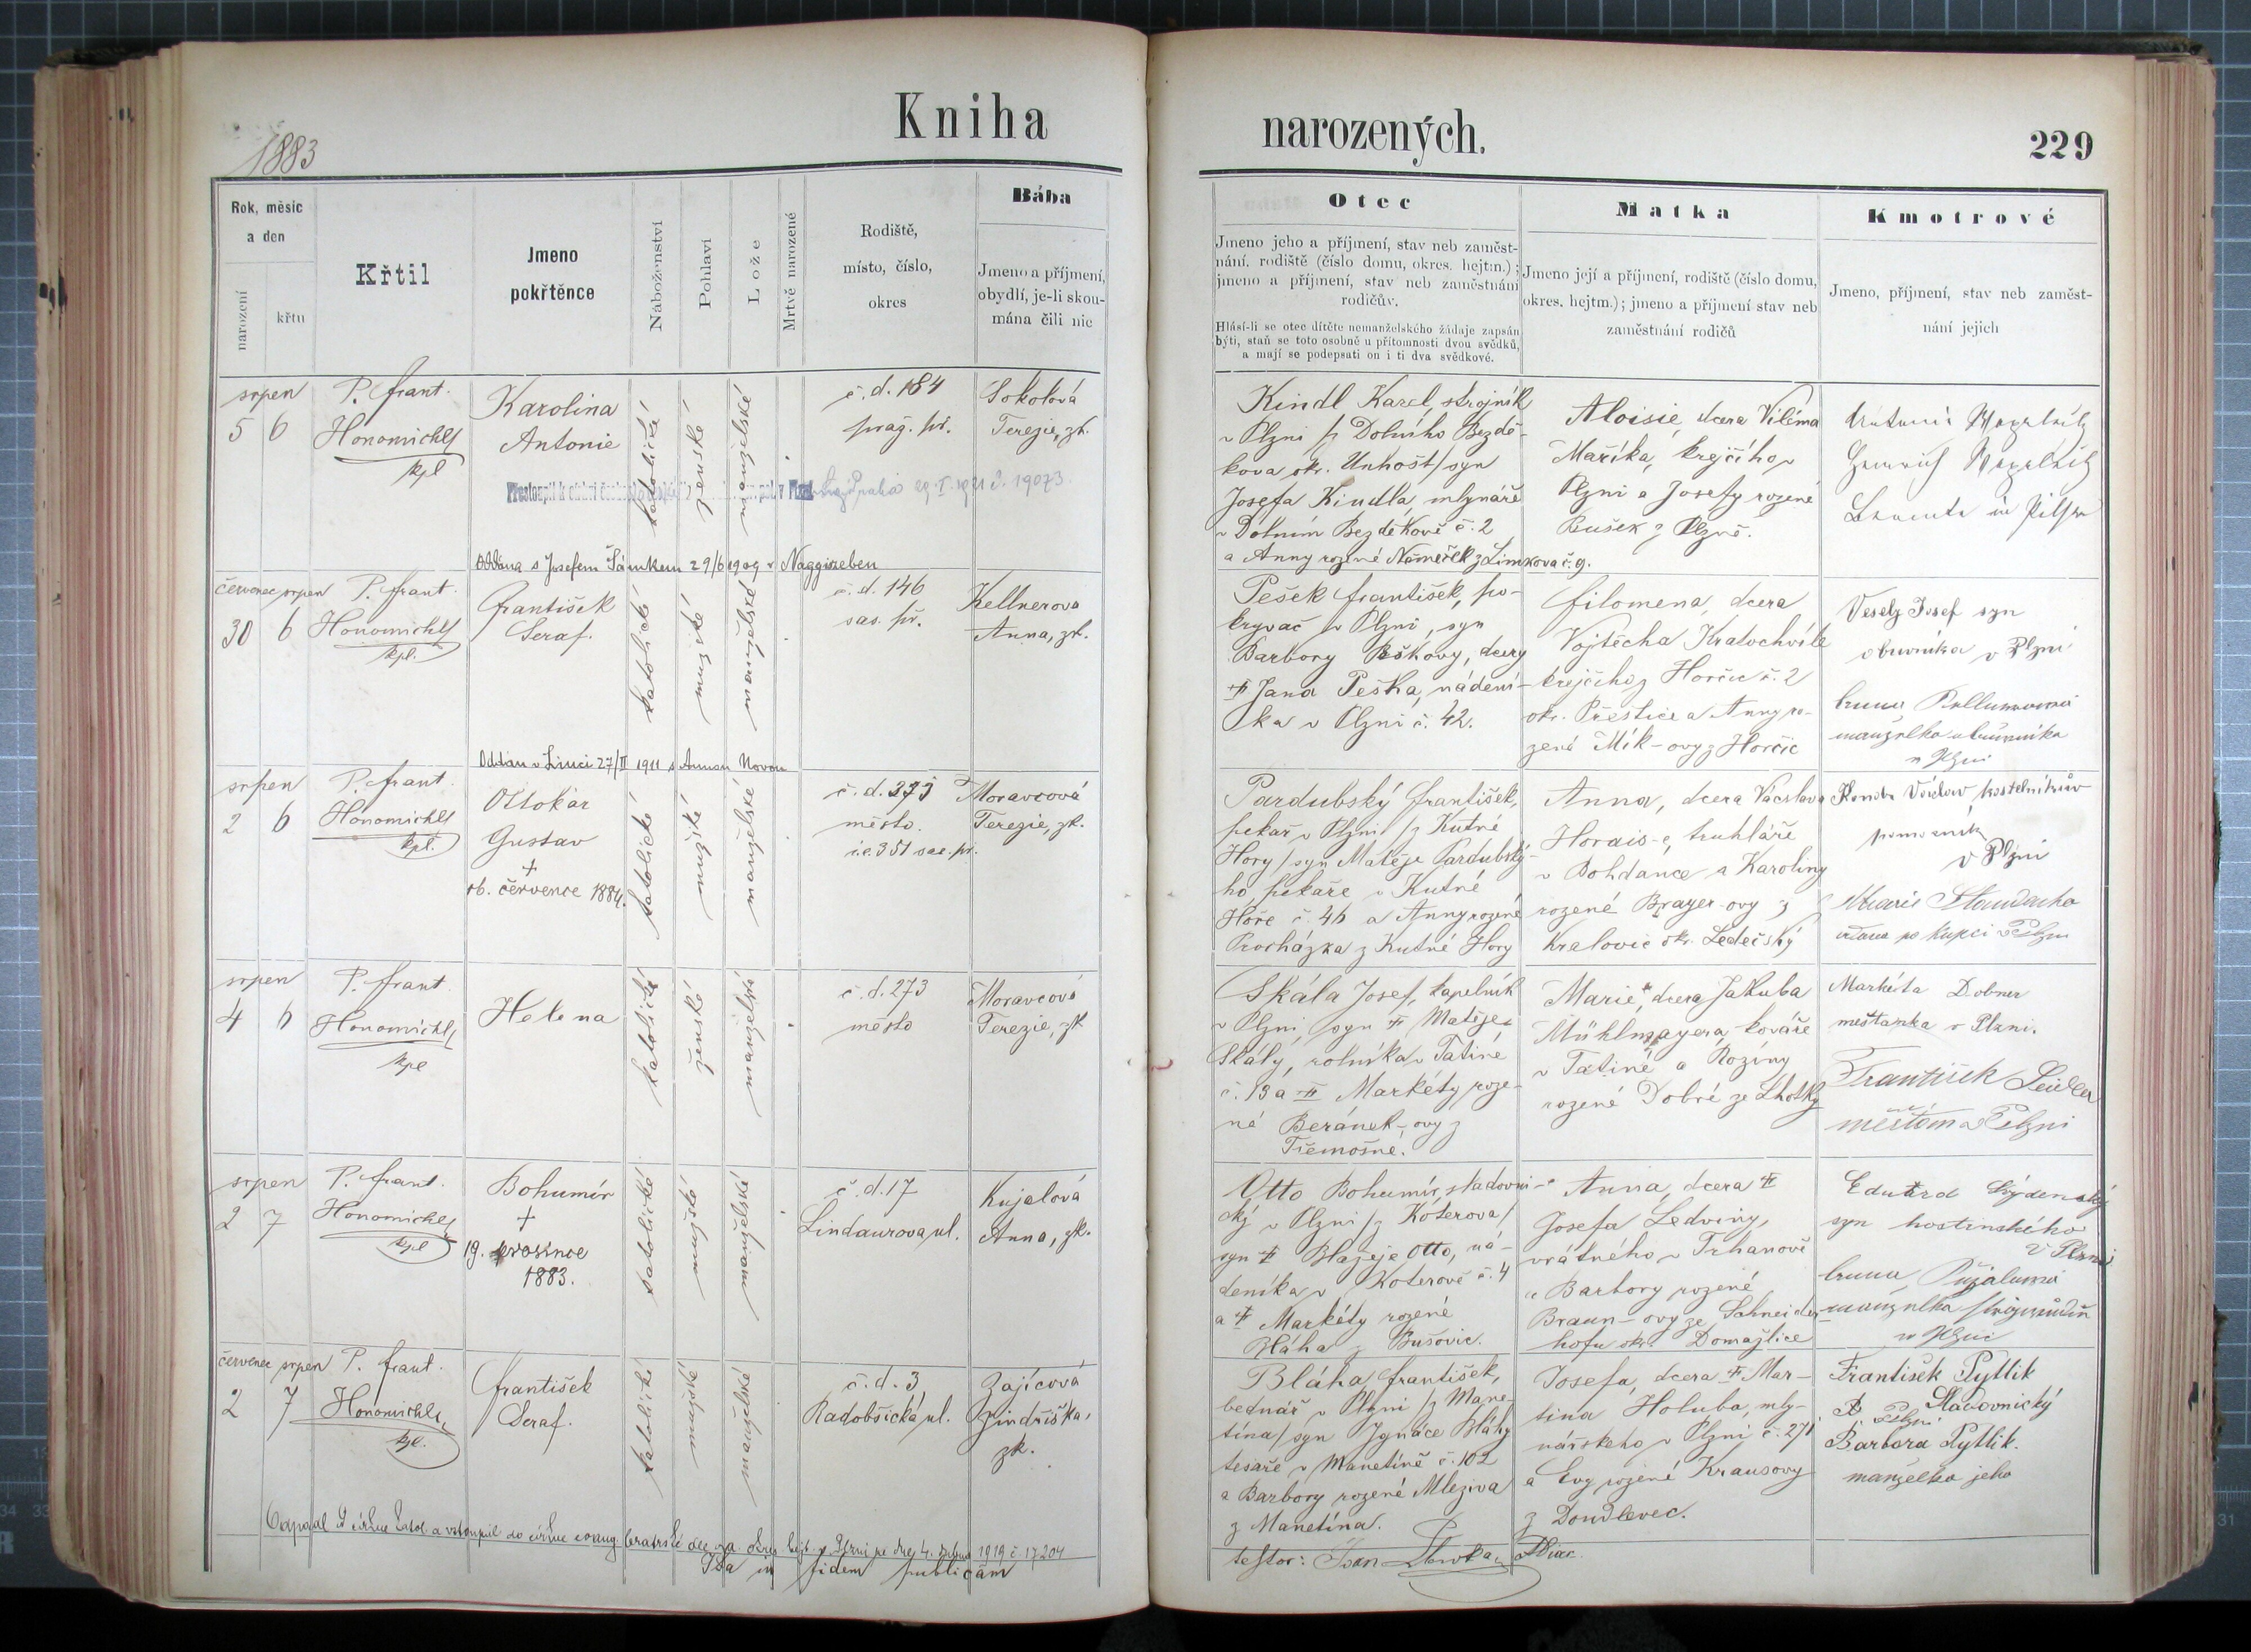 1883
Kniha
narozených.
229
Rok, měsíc
a den
narození
křtu
Křtil
Jmeno
pokřtěnce
Náboženství
Pohlaví
Lože
Mrtvě narozené
Rodiště,
místo, číslo,
okres
Bába
Jmeno a příjmení,
obydlí, je-li skou-
mána čili nic
Otec
Jmeno jeho a příjmení, stav neb zaměst-
nání. rodiště (číslo domu, okres. hejtm.);
jmeno a příjmení, stav neb zaměstnání
rodičův.
Hlásí-li se otec dítěte nemanželského žádaje zapsán
býti, staň se toto osobně u přítomnosti dvou svědků,
a mají se podepsati on i ti dva svědkové.
Matka
Jmeno její a příjmení, rodiště (číslo domu,
okres. hejtm.); jmeno a příjmení stav neb
zaměstnání rodičů
Kmotrové
Jmeno, příjmení, stav neb zaměst-
nání jejich
srpen
5 6
P. Frant.
Honomichl
kpl
Karolina
Antonie
katolické
ženské
manželské
č. d. 184
praž. př.
Sokolová
Terezie, zk.
29. I. 1921 č. 19073
Oddána s Josefem Šámkem 29/6 1909 v Naggiszeben
Kindl Karel, strojník
v Plzni /z Dolního Bezdě-
kova okr. Unhošť/ syn
Josefa Kindla, mlynáře
v Dolním Bezděkově č. 2
a Anny rozené Němeček z Limkova č. 9.
Aloisie, dcera Viléma
Maříka, krejčího v
Plzni a Josefy rozené
Bušek z Plzně.
červenec srpen
30 6
P. Frant.
Honomichl
kpl.
František
Seraf.
katolické
mužské
manželské
č. d. 146
sas. př.
Kellnerova
Anna, zk.
Oddán v Linci 27/II 1911 s Annou Novou
Pešek František, po-
krývač v Plzni, syn
Barbory Peškovy, dcery
Jana Peška, nádení-
ka v Plzni č. 42.
Filomena, dcera
Vojtěcha Kratochvíle
krejčího z Horčic č. 2
okr. Přeštice a Anny ro-
zené Mík-ovy z Horčic
Veselý Josef syn
obuvníka v Plzni
manželka obuvníka
v Plzni
srpen
2 6
P. Frant
Honomichl
kpl.
Ottokar
Gustav
+
16. července 1884.
katolické
mužské
manželské
č. d. 273
město.
i.e. 351 sas. př.
Moravcová
Terezie, zk.
Pardubský František,
pekař v Plzni /z Kutné
Hory/ syn Matěje Pardubský-
ho, pekaře v Kutné
Hoře č. 46 a Anny rozené
Procházka z Kutné Hory
Anna, dcera Václava
truhláře
v Bohdance a Karoliny
rozené Brayer-ovy z
Kralovic okr. Ledečský
Václav, kostelníkův
pomocník
v Plzni
Marie
vdova po kupci v Plzni
srpen
4 6
P. Frant
Honomichl,
kpl
Helena
katolické
ženské
manželské
č. d. 273
město
Moravcová
Terezie, zk
Skála Josef, kapelník
v Plzni, syn Matěje
Skály, rolníka v Tatiné
č. 13 a Markéty roze-
né Beránek-ovy z
Třemošné.
Marie, dcera Jakuba
Mühlmayera, kováře
v Tatiné a Roziny
rozené Dobré ze Lhotky
Markéta Dobner
meštanka v Plzni.
František Seidler
měšťan v Plzni
srpen
2 7
P. Frant.
Honomichl
kpl
Bohumír
+
19. prosince
1883.
katolické
mužské
manželské
č. d. 17
Lindaurova ul.
Kujalová
Anna, zk.
Otto Bohumír, sladovni-
cký v Plzni /z Koterova/
syn Blažeje Otto, ná-
deníka v Koterově č. 4
a Markéty rozené
Bláha z Bušovic.
Anna, dcera
Josefa Ledviny,
vrátného v Trhanově
a Barbory rozené
Braun-ovy ze Schneider-
hofu okr. Domažlice
Eduard
syn hostinského
v Plzni
v Plzni
červenec srpen
2 7
P. Frant.
Honomichl,
kpl.
František
Seraf.
katolické
mužské
manželské
č. d. 3
Radobčická ul.
Zajícová
Jindřiška,
zk.
Bláha František,
bednář v Plzni /z Mane-
tína/ syn Ignáce Bláhy
tesaře v Manetíně č. 102
a Barbory rozené Mleziva
z Manetína.
Josefa, dcera Mar-
tina Holuba, mly-
nářského v Plzni č. 271
a Evy rozené Krausovy
z Doudlevec.
František Pytlik
Sladovnický
v Plzni
Barbora Pytlik.
manželka jeho
Odpadl od církve katol. a vstoupil do církve evang. bratrské dle ozn. okres. hejt. v Plzni ze dne 4. dubna 1919 č. 17204
Ita in fidem publicam
testor: Ivan